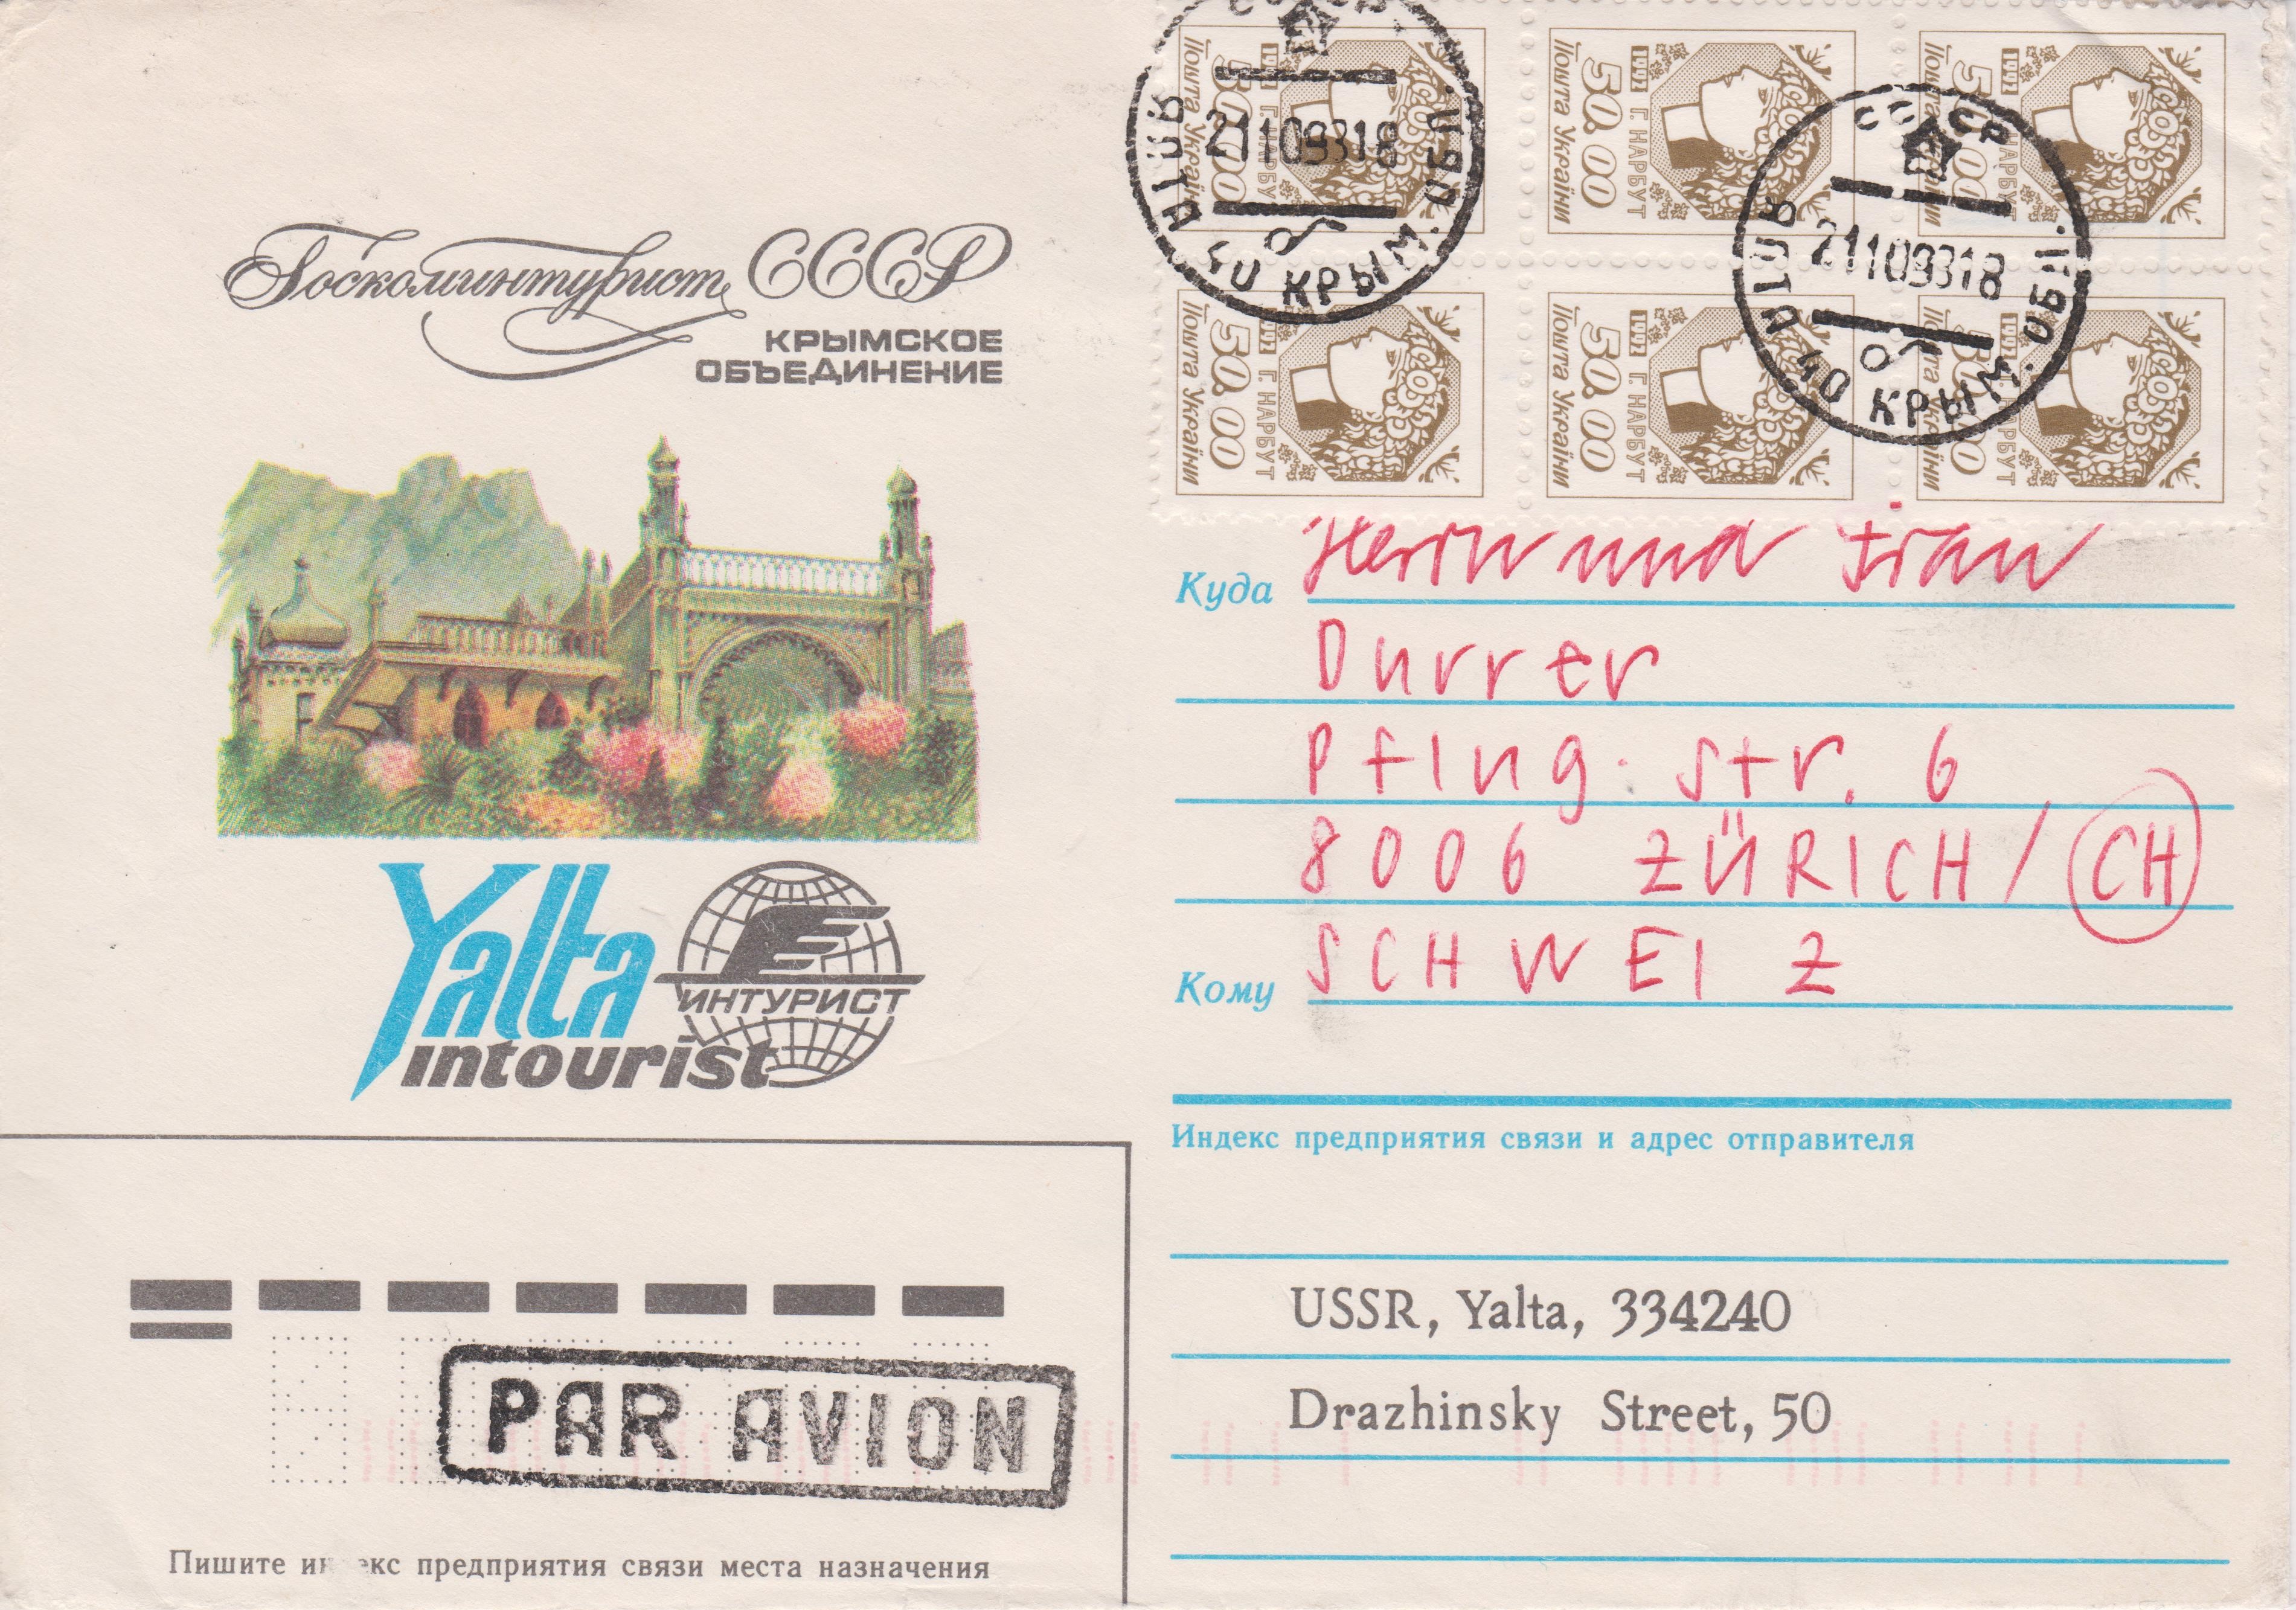 Госкоминтурист СССР
КРЫМСКОЕ
ОБЪЕДИНЕНИЕ
Yalta
intourist
ИНТУРИСТ
PAR AVION
Пишите индекс предприятия связи места назначения
1992 Г. НАРБУТ
50.00
Пошта України
1992 Г. НАРБУТ
50.00
Пошта України
1992 Г. НАРБУТ
50.00
Пошта України
1992 Г. НАРБУТ
50.00
Пошта України
1992 Г. НАРБУТ
50.00
Пошта України
1992 Г. НАРБУТ
50.00
Пошта України
СССР
21109318
ЯЛТА 40 КРЫМ. ОБЛ.
СССР
21109318
ЯЛТА 40 КРЫМ. ОБЛ.
Куда Herrn und Frau
Durrer
Pflug.str. 6
8006 ZÜRICH / CH
Кому SCHWEIZ
Индекс предприятия связи и адрес отправителя
USSR, Yalta, 334240
Drazhinsky Street, 50